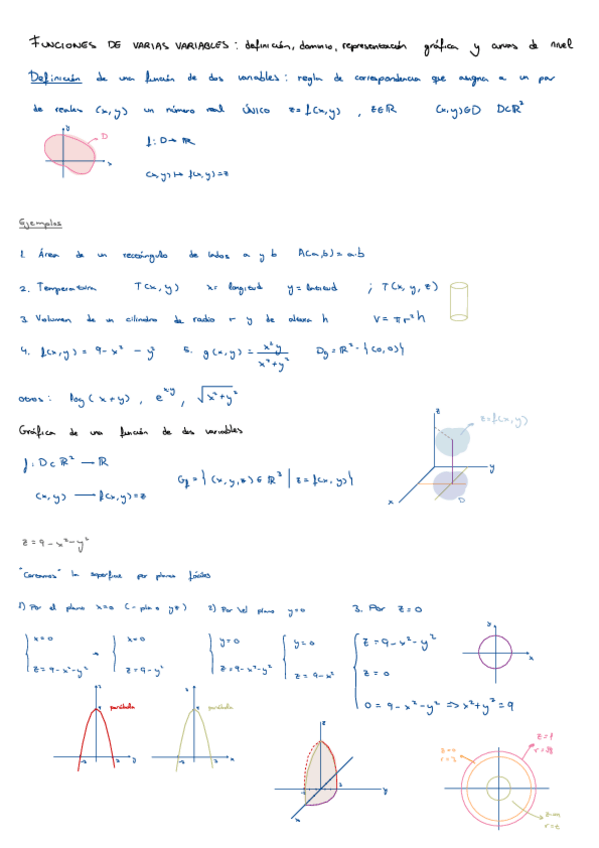 FUNCIONES DE VARIAS VARIABLES: definición, dominio, representación gráfica y curvas de nivel
Definición de una función de dos variables: regla de correspondencia que asigna a un par
de reales (x,y) un número real ÚNICO z=f(x,y) , z∈ℝ (x,y)∈D D⊂ℝ²
y
D
x
f: D→ ℝ
(x,y)↦ f(x,y)=z
Ejemplos
1. Área de un rectángulo de lados a y b A(a,b)=a·b
2. Temperatura T(x,y) x= longitud y= latitud ; T(x,y,z)
3. Volumen de un cilindro de radio r y de altura h V=πr²h
4. f(x,y) = 9-x² - y² 5. g(x,y) = x²y / x²+y² Dg=ℝ²-{(0,0)}
otros: log(x+y) , e^xy , √x²+y²
Gráfica de una función de dos variables
z
z=f(x,y)
y
x
D
f: D⊂ℝ² → ℝ
(x,y) → f(x,y)=z
Gf={(x,y,z)∈ℝ³ | z=f(x,y)}
z=9-x²-y²
"Cortamos" la superficie por planos fáciles
1) Por el plano x=0 (-plano yz) 2) Por el plano y=0 3. Por z=0
{ x=0
z=9-x²-y²
→ { x=0
z=9-y²
{ y=0
z=9-x²-y²
{ y=0
z=9-x²
{ z=9-x²-y²
z=0
0=9-x²-y² => x²+y²=9
y
x
z
9
parábola
-3 3 y
z
9
parábola
-3 3 x
z
3
y
x
z=0
r=3